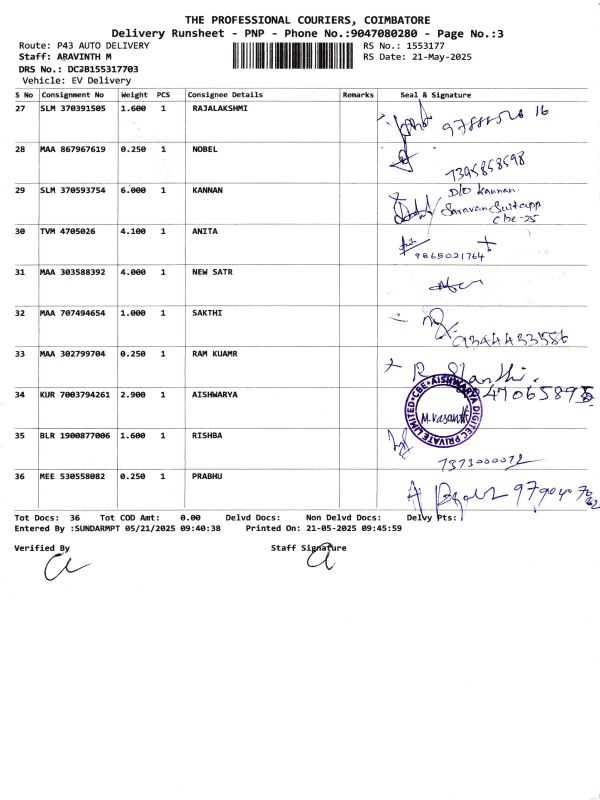 THE PROFESSIONAL COURIERS, COIMBATORE
Delivery Runsheet - PNP - Phone No.:9047080280 - Page No.:3
Route: P43 AUTO DELIVERY RS No.: 1553177
Staff: ARAVINTH M RS Date: 21-May-2025
DRS No.: DC2B155317703
Vehicle: EV Delivery
S No Consignment No Weight PCS Consignee Details Remarks Seal & Signature
27 SLM 370391505 1.600 1 RAJALAKSHMI
28 MAA 867967619 0.250 1 NOBEL
7395858598
29 SLM 370593754 6.000 1 KANNAN
D/O Kannan.
30 TVM 4705026 4.100 1 ANITA
9865021764
31 MAA 303588392 4.000 1 NEW SATR
32 MAA 707494654 1.000 1 SAKTHI
9344433586
33 MAA 302799704 0.250 1 RAM KUAMR
R. Shanthi.
34 KUR 7003794261 2.900 1 AISHWARYA
AISHWARYA DIGITEC PRIVATE LIMITED CBE
M. Vasanth
35 BLR 1900877006 1.600 1 RISHBA
7373000072
36 MEE 530558082 0.250 1 PRABHU
Tot Docs: 36 Tot COD Amt: 0.00 Delvd Docs: Non Delvd Docs: Delvy Pts:
Entered By :SUNDARMPT 05/21/2025 09:40:38 Printed On: 21-05-2025 09:45:59
Verified By Staff Signature